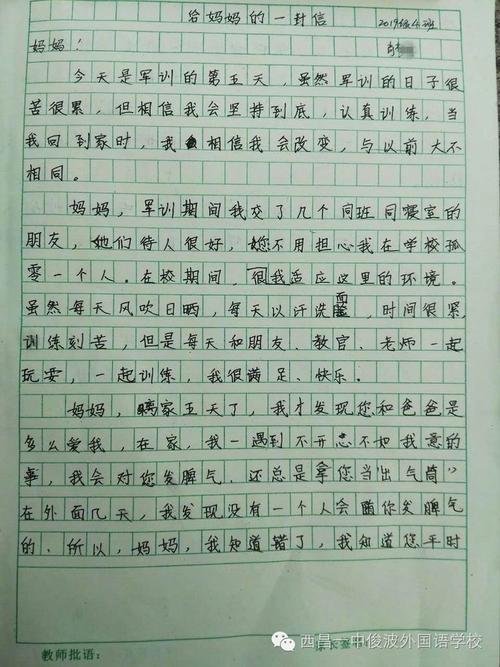 给妈妈的一封信
2019级4班
妈妈!
今天是军训的第五天,虽然军训的日子很
苦很累,但相信我会坚持到底,认真训练,当
我回到家时,我相信我会改变,与以前大不
相同。
妈妈,军训期间我交了几个同班同寝室的
朋友,她们待人很好,您不用担心我在学校孤
零一个人。在校期间,很我适应这里的环境。
虽然每天风吹日晒,每天以汗洗面,时间很紧,
训练刻苦,但是每天和朋友、教官、老师一起
玩安,一起训练,我很满足、快乐。
妈妈,离家五天了,我才发现您和爸爸是
多么爱我,在家,我一遇到不开心不如我意的
事,我会对您发脾气,还总是拿您当“出气筒”
在外面几天,我发现没有一个人会
你发脾气
的、所以,妈妈,我知道错了,我知道您平时
教师批语:
西昌一中俊波外国语学校